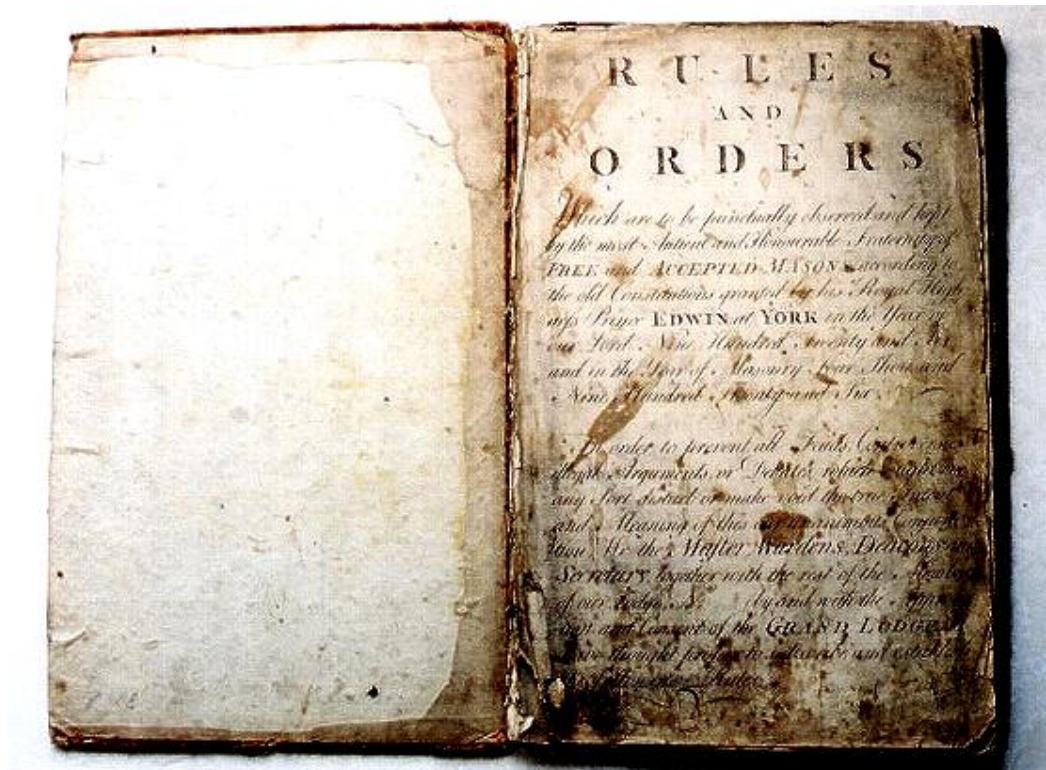 RULES
AND
ORDERS
Which are to be punctually observed and kept
by the most Antient and Honourable Fraternity of
FREE and ACCEPTED MASONS according to
the old Constitutions granted by his Royal High
ness Prince EDWIN at YORK in the Year of
our Lord Nine Hundred Twenty and Six
and in the Year of Masonry Four Thousand
Nine Hundred Twenty and Six
In order to prevent all Feuds Controversies
illegal Arguments or Debates which might in
any Sort disturb or make void the true Intent
and Meaning of this our unanimous
We the Master Wardens, Deacons and
Secretary together with the rest of the Members
of our Lodge No by and with the
and Consent of the GRAND LODGE
have thought proper to subscribe and establish
following Rules